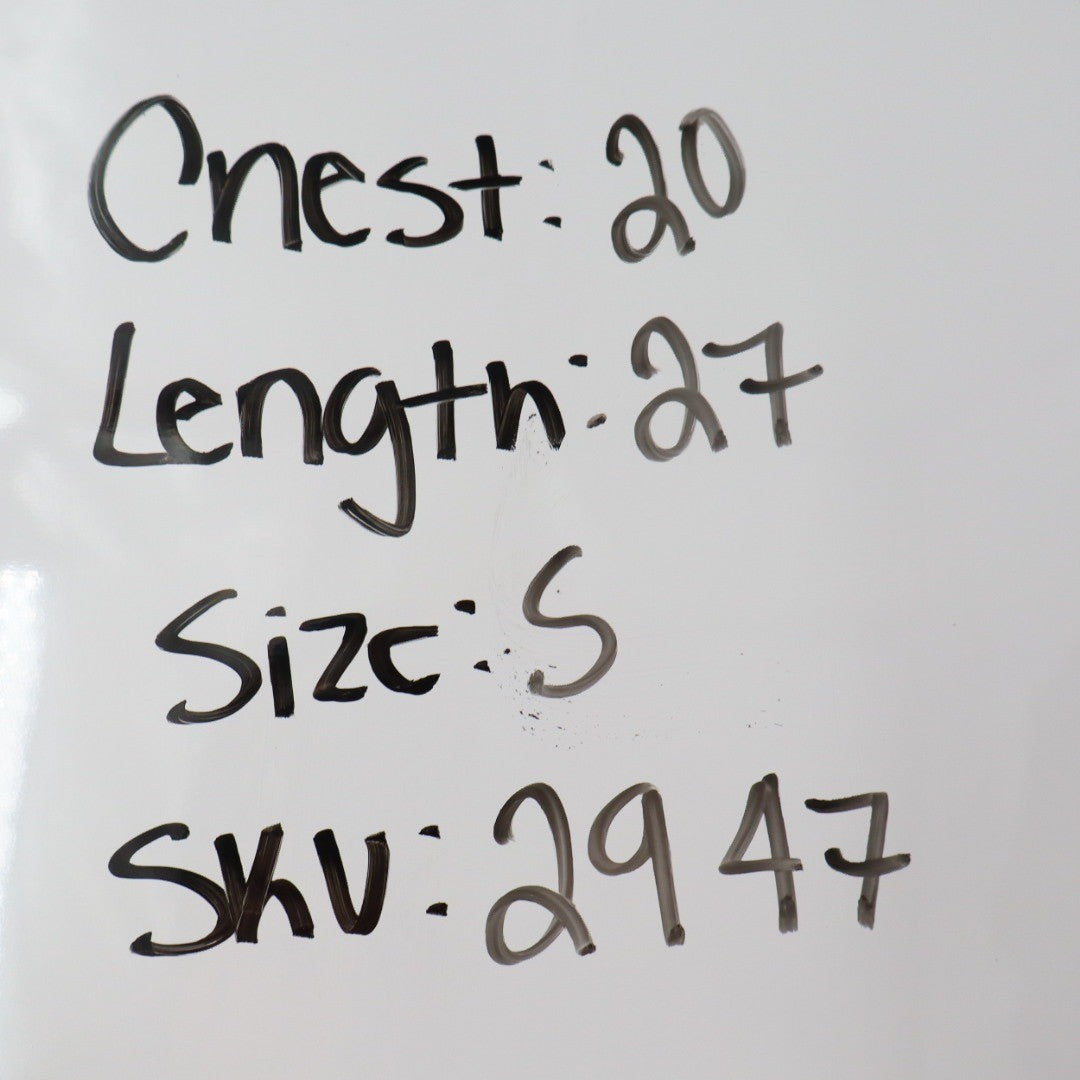 Chest: 20
Length: 27
Size: S
SKU: 2947